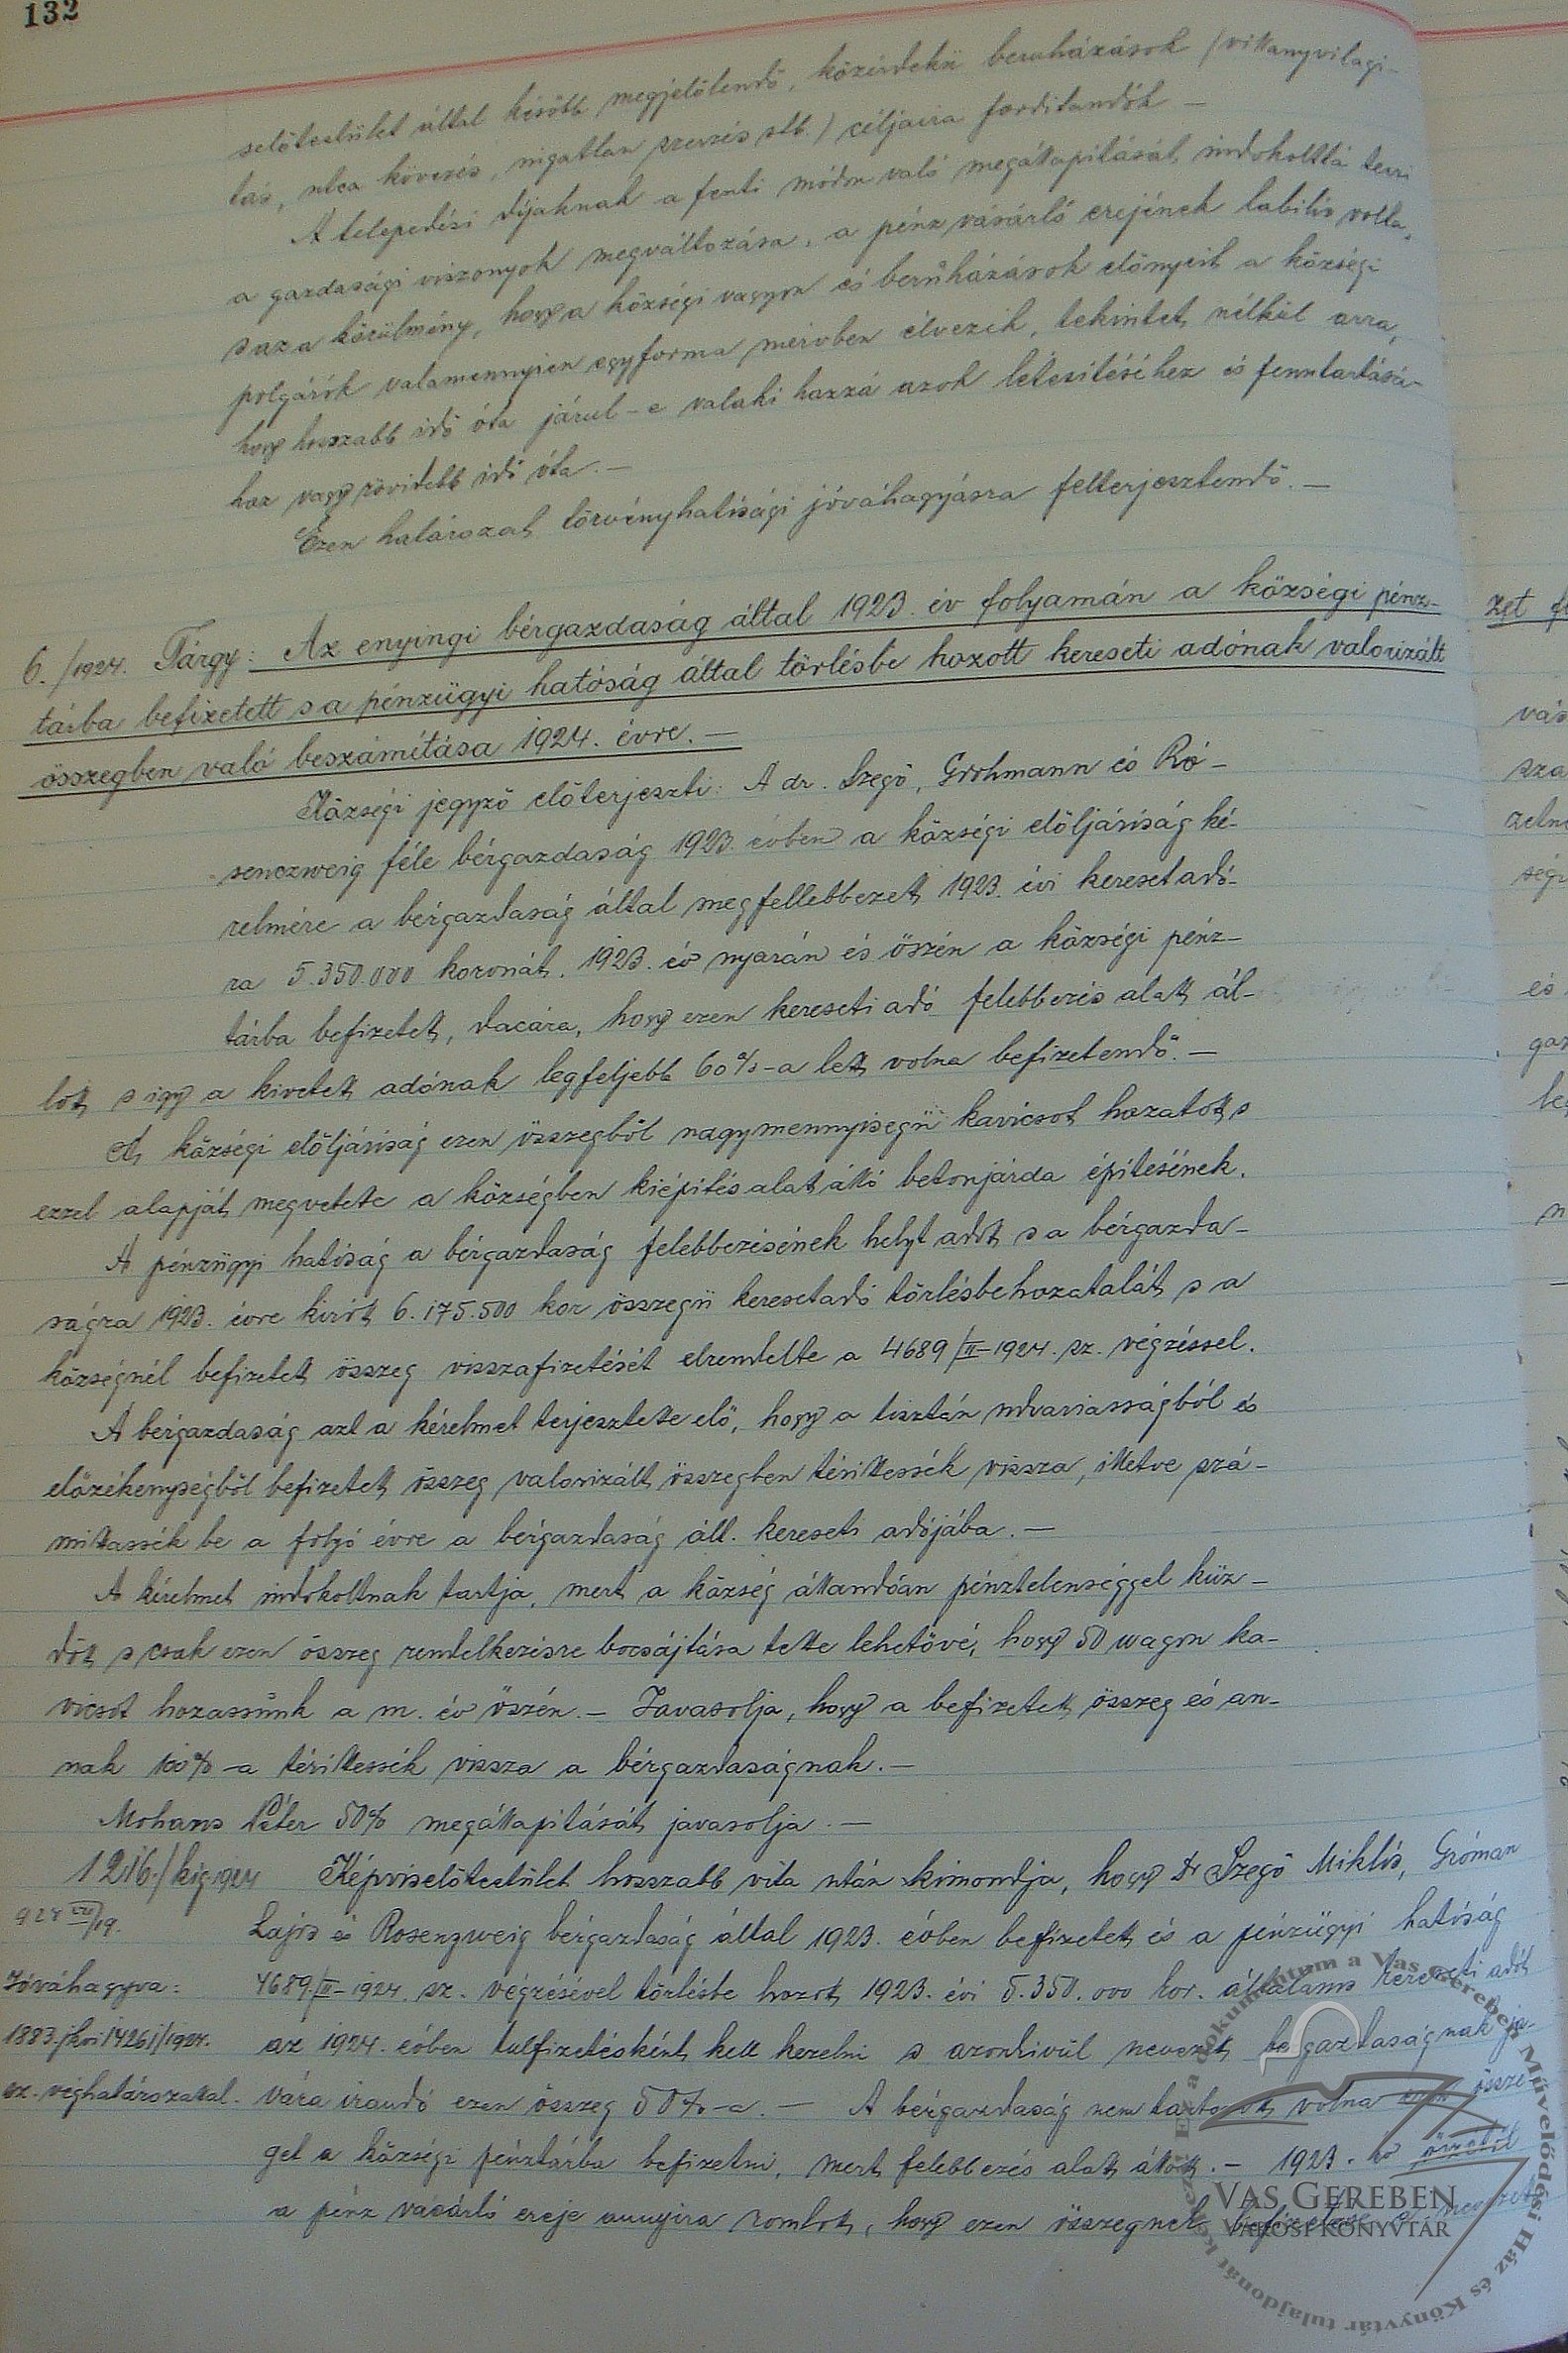 132
selőtestület által később megjelölendő, közérdekü beruházások (villanyvilagi-
tás, utca kövezés, ingatlan szerzés stb.) céljaira forditandók —
A telepedési dijaknak a fenti módon való megállapitását indokolttá teszi
a gazdasági viszonyok megváltozása, a pénz vásárló erejének labilis volta,
s az a körülmény, hogy a községi vagyon és beruházások előnyeit a községi
polgárok valamennyien egyforma mérvben élvezik, tekintet nélkül arra,
hogy hosszabb idő óta járul-e valaki hozzá azok létesitéséhez és fenntartásá-
hoz vagy rövidebb idő óta. —
Ezen határozat törvényhatósági jóváhagyásra felterjesztendő. —
6./1924. Tárgy: Az enyingi bérgazdaság által 1923. év folyamán a községi pénz-
tárba befizetett s a pénzügyi hatóság által törlésbe hozott kereseti adónak valorizált
összegben való beszámítása 1924. évre. —
Községi jegyző előterjeszti: A dr. Szegő, Grohmann és Ró-
senczweig féle bérgazdaság 1923. évben a községi elöljáróság ké-
relmére a bérgazdaság által megfellebbezett 1923. évi kereset adó-
ra 5.350.000 koronát. 1923. év nyarán és őszén a községi pénz-
tárba befizetett, dacára, hogy ezen kereseti adó felebbezés alatt ál-
lott s igy a kivetett adónak legfeljebb 60%-a lett volna befizetendő. —
A községi elöljáróság ezen összegből nagymennyiségü kavicsot hozatott s
ezzel alapját megvetette a községben kiépités alatt álló betonjárda épitésének.
A pénzügyi hatóság a bérgazdaság felebbezésének helyt adott s a bérgazda-
ságra 1923. évre kirótt 6.175.500 kor összegü keresetadó törlésbehozatalát s a
községnél befizetett összeg visszafizetését elrendelte a 4689/II-1924. sz. végzéssel.
A bérgazdaság azt a kérelmet terjesztette elő, hogy a tisztán udvariasságból és
előzékenységből befizetett összeg valorizált összegben térittessék vissza, illetve szá-
mittassék be a folyó évre a bérgazdaság ált. kereseti adójába. —
A kérelmet indokoltnak tartja, mert a község állandóan pénztelenséggel küz-
dött s csak ezen összeg rendelkezésre bocsájtása tette lehetővé, hogy 50 wagon ka-
vicsot hozassunk a m. év őszén. — Javasolja, hogy a befizetett összeg és an-
nak 100%-a térittessék vissza a bérgazdaságnak. —
Mohans Péter 50% megállapitását javasolja. —
1216./kig 1924 Képviselőtestület hosszabb vita után kimondja, hogy Dr Szegő Miklós, Gróman
Lajos és Rosenzweig bérgazdaság által 1923. évben befizetett és a pénzügyi hatóság
Jóváhagyva: 4689/II-1924. sz. végzésével törlésbe hozott 1923. évi 5.350.000 kor. általános kereseti adót
az 1924. évben tulfizetésként kell kezelni s azonkivül nevezett bérgazdaságnak ja-
sz. véghatározattal. vára irandó ezen összeg 50%-a. — A bérgazdaság nem tartozott volna ezen össze-
get a községi pénztárba befizetni, mert felebbezés alatt állott. — 1923.
a pénz vásárló ereje annyira romlott, hogy ezen összegnek
zet
és
VAS GEREBEN
VÁROSI KÖNYVTÁR
Ez a dokumentum a Vas Gereben Művelődési Ház és Könyvtár tulajdonát képezi